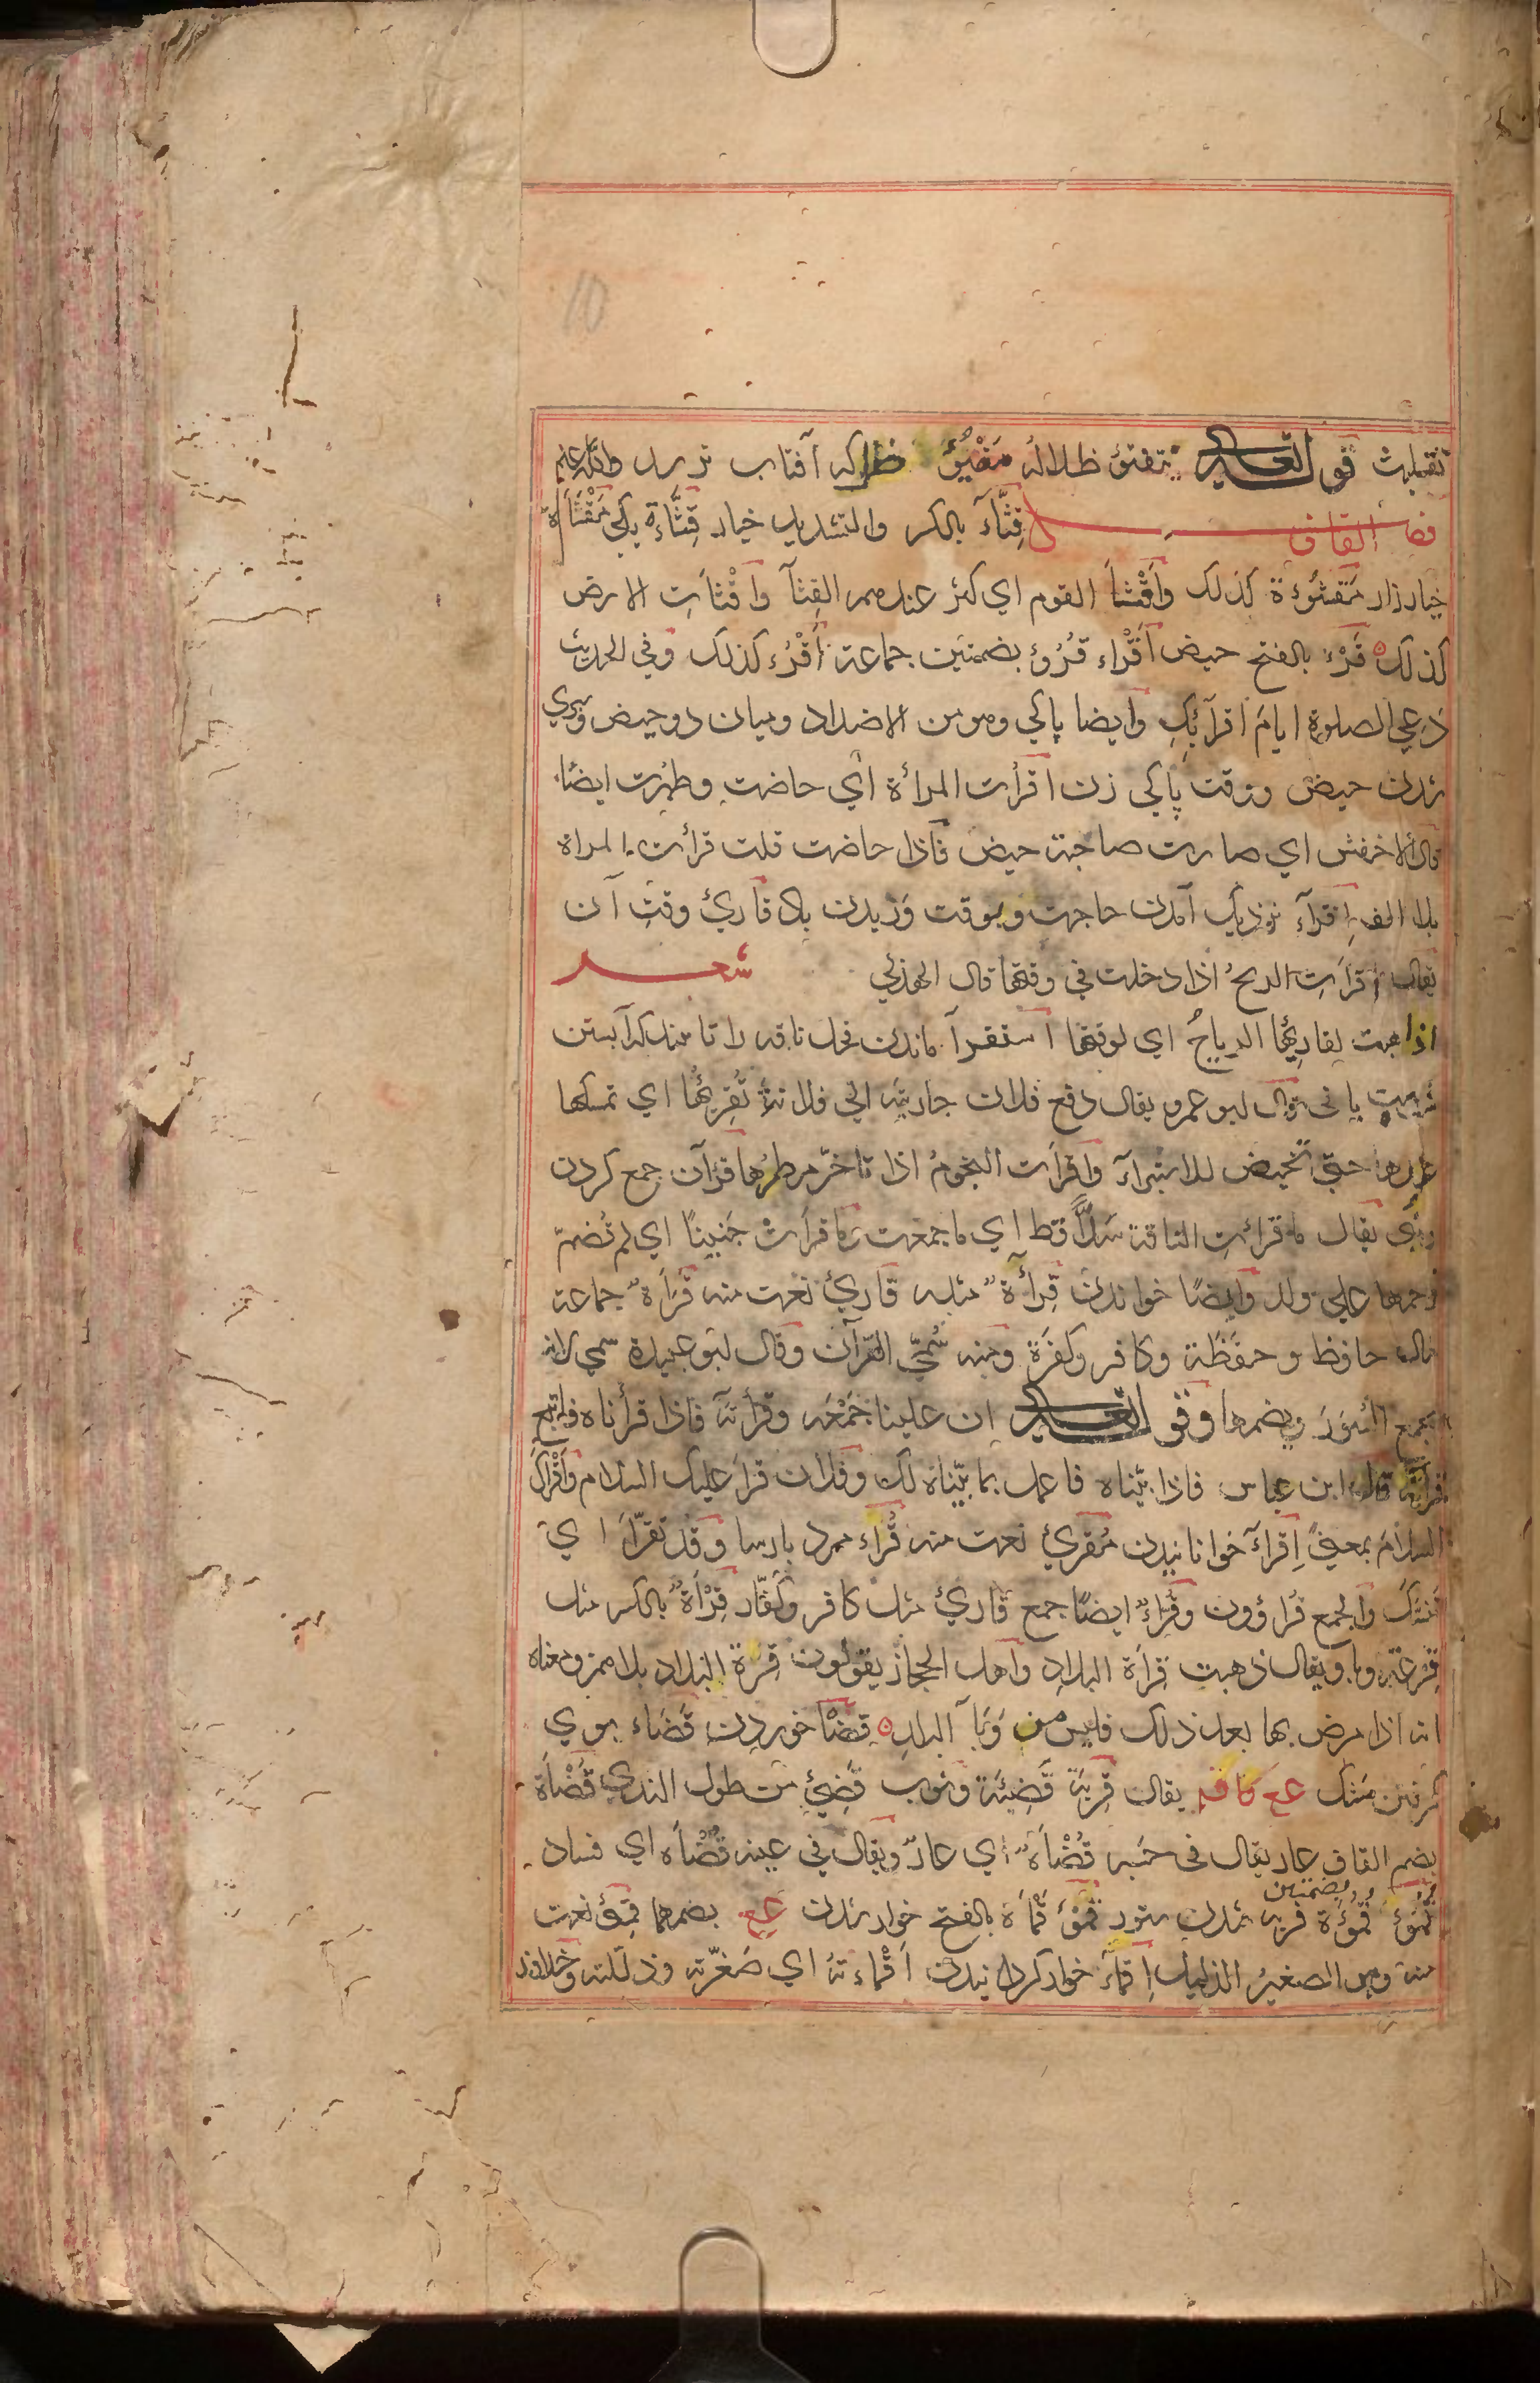 تقلبت قوله تعالى يتفيؤ ظلاله مَفْيُؤٌ ظل كه آفتاب نرسد والله اعلم
فصل القاف قِثَّآءٌ بالكسر والتشديد خيار قِثَّاءَة يكي مَقْثَأَةٌ
خيارزار مَقْثُؤَة كذلك وَأَقْثَأَ القوم اي كثر عندهم القِثآ وَاقْثأَتِ الارض
كذلك ه قَرْء بالفتح حيض اَقْراء قُرُؤ بضمتين جماعة أَقْرُء كذلك وفي الحديث
دَعِي الصلوة ايامَ اقرآئِكِ وايضا پاكي وهو من الاضداد وميان دو حيض وسپري
شدن حيض ووقت پاكي زن اقرأت المرأة اي حاضت وطهرت ايضًا
قال الاخفش اي صارت صاحبة حيض فاذا حاضت قلت قرأت المراة
بلا الف اِقرآء نزديك آمدن حاجت وبوقت وَزيدن باد قارئ وقتِ آن
يقال أقرأَتِ الريحُ اذا دخلت في وقتها قال الهذلي شعر
اذا هبت لِقارِئِها الرياحُ اي لوقتها استقرآ ماندن فحل ناقه را تا بيند كه آبستن
شده است يا نى قال ابو عمرو يقال دفع فلان جاريته الي فلانة تُقرِئُها اي تمسكها
عندها حتي تحيض للاستبرآء واقرأت النجومُ اذا تاخّر مطرُها قرآن جمع كردن
يقال ما قرأتِ الناقة سَلًا قط اي ما جمعت وما قرأتْ جَنينًا اي لم تُضمّ
رحمها علي ولد وايضًا خواندن قِرأَةٌ مثله قاريٌ نعت منه قَرَأَةٌ جماعة
مثاله حافظ وحفَظَة وكافر وكفَرَة ومنه سُمّيَ القرآن وقال ابو عبيدة سمي لانه
يجمع السُوَرَ ويضمها وقوله تعالى ان علينا جَمْعَه وقرأنَه فاذا قرأناه فاتبع
قرآنَه قال ابن عباس فاذا بيّناه فاعمل بما بيّناه لك وفلان قرأ عليك السلام وَأَقْرَاكَ
السلامَ بمعنيً اِقرآء خوانانيدن مُقرئ نعت منه قُراء مرد پارسا وقد تقرّأَ اي
تَنسّكَ والجمع قُراؤون وقُرّاءٌ ايضًا جمع قاريٌ مثل كافر وكُفّار قِرْأَةٌ بالكسر مثل
قِرعَة وبا ويقال ذهبت قِرأَة البلادِ واهل الحجاز يقولون قِرَة البلاد بلا همز ومعناه
انه اذا مرض بها بعد ذلك فليس من وَبَآ البلدِ ه قَضْأ خوردن قَضَاء بوي
گرفتن مَشك عع كا قه يقال قِربَة قَضِئَة وثوب قَضِئ من طول الندي قَضْأة
بضم القاف عار يقال في حَسَبه قُضْأَةٌ اي عارٌ ويقال في عينه قُضْأَه اي فساد
قُمُؤ قُمُؤَة بضمتين فربه شدن ستور قَمْؤ قَمْأَة بالفتح خوار شدن عع بضمهما قَمِئ نعت
منه وهو الصغيرُ الذليل اِقمآء خوار كردانيدن اَقْمَاءته اي صَغَّرته وذللته وخلافه